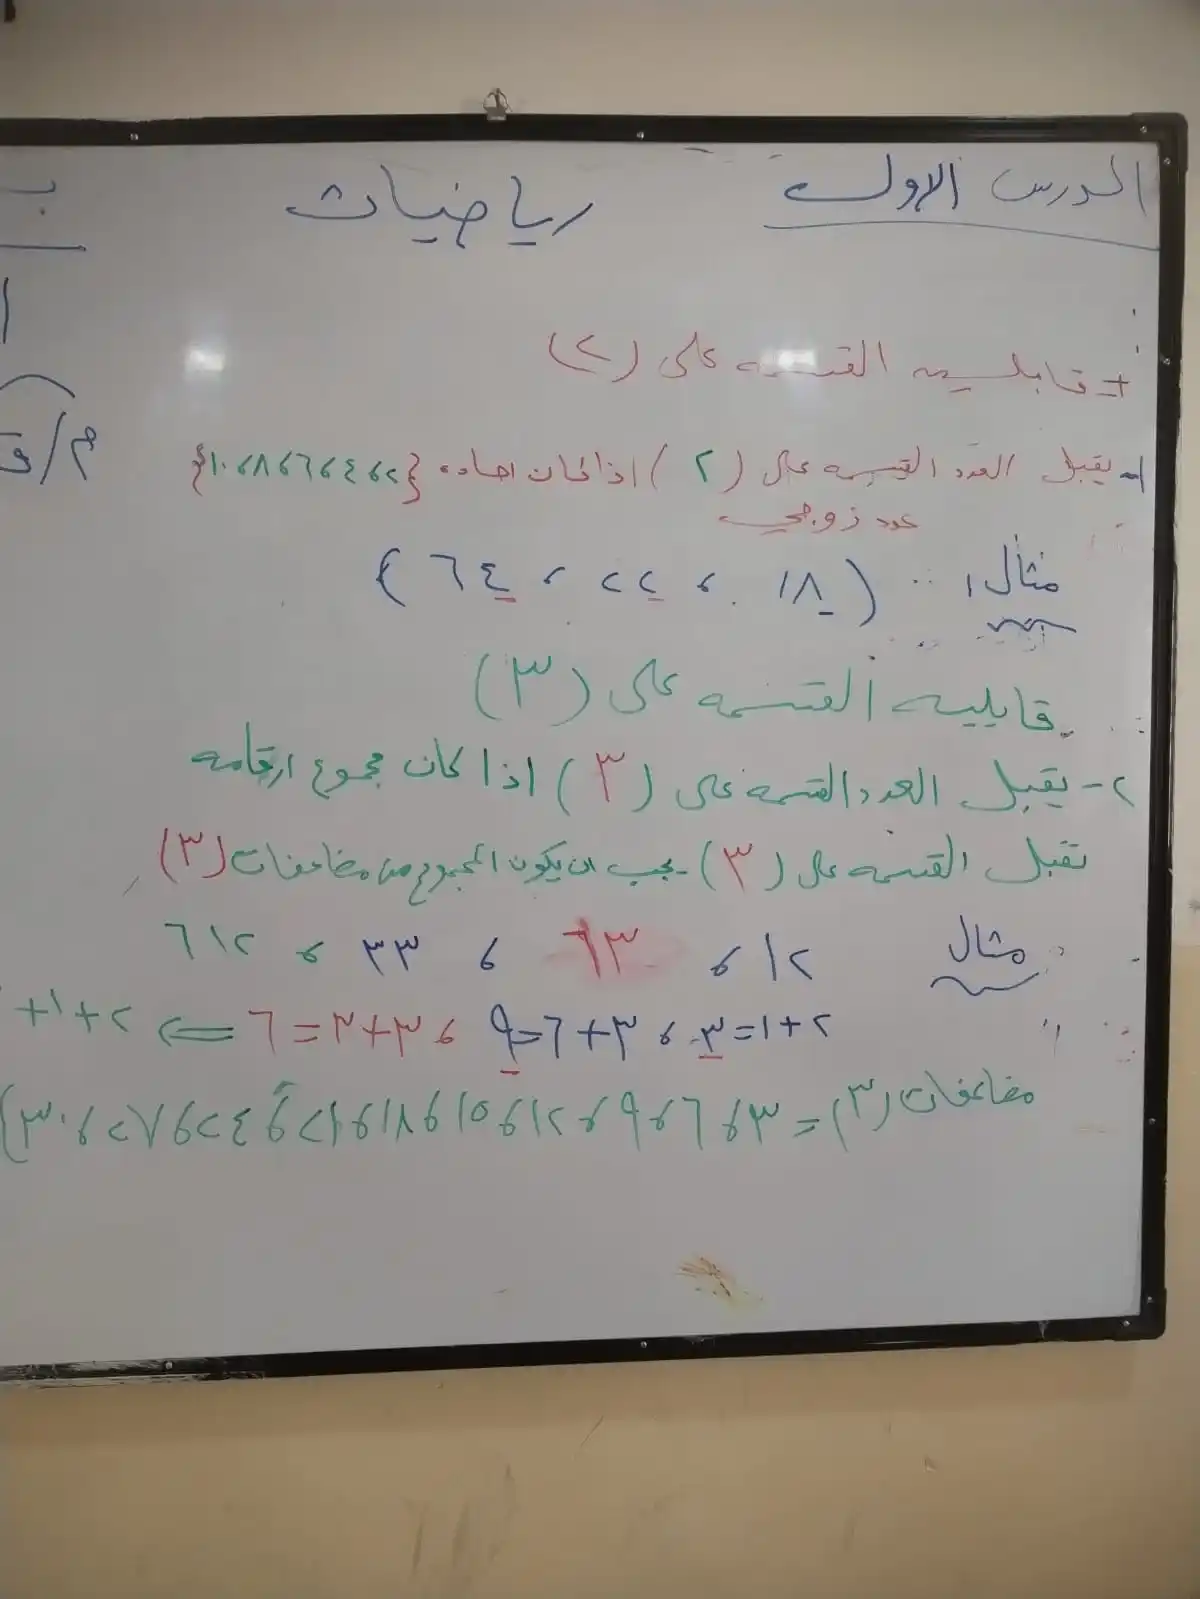 الدرس الاول
رياضيات
قابلية القسمه على (٢)
١- يقبل العدد القسمه على (٢) اذا كان احاده {٢، ٤، ٦، ٨، ١٠}
عدد زوجي
مثال (١٨، ٢٢، ٦٤)
قابلية القسمه على (٣)
٢- يقبل العدد القسمه على (٣) اذا كان مجموع ارقامه
تقبل القسمه على (٣) يجب ان يكون المجموع من مضاعفات (٣)
مثال ١٢، ٦٣، ٣٣، ٦١٢
٢+١=٣، ٣+٦=٩، ٣+٣=٦ <= ٢+١+
مضاعفات (٣) = ٣، ٦، ٩، ١٢، ١٥، ١٨، ٢١، ٢٤، ٢٧، ٣٠)